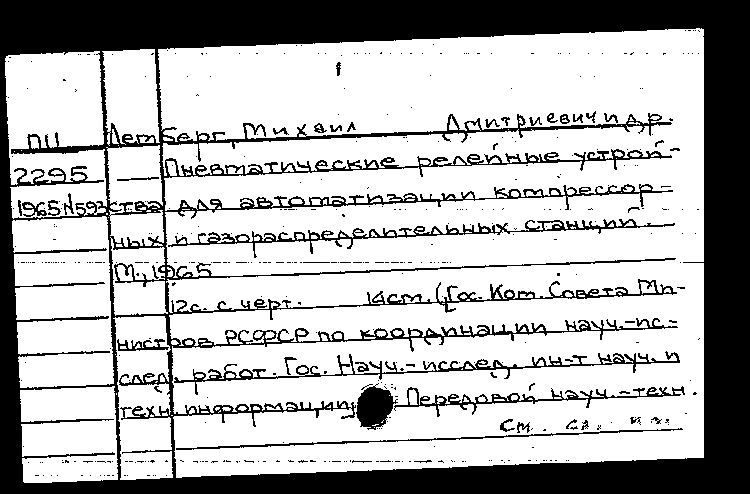 ПЦ Лемберг, Михаил Дмитриевич и др.
2295 — Пневматические релейные устрой-
1965/1593 ства для автоматизации компрессор-
ных и газораспределительных станций.
М., 1965
12с. с черт. 14см. (Гос. Ком. Совета Ми-
нистров РСФСР по координации науч.-ис-
след. работ. Гос. Науч.-исслед. ин-т науч. и
техн. информации. Передовой науч.-техн.
См. сл.